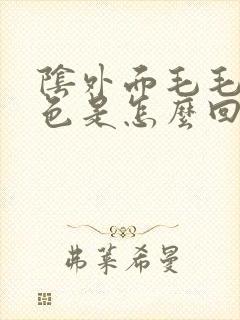 陰外而毛毛
色是怎麼回
弗萊希曼